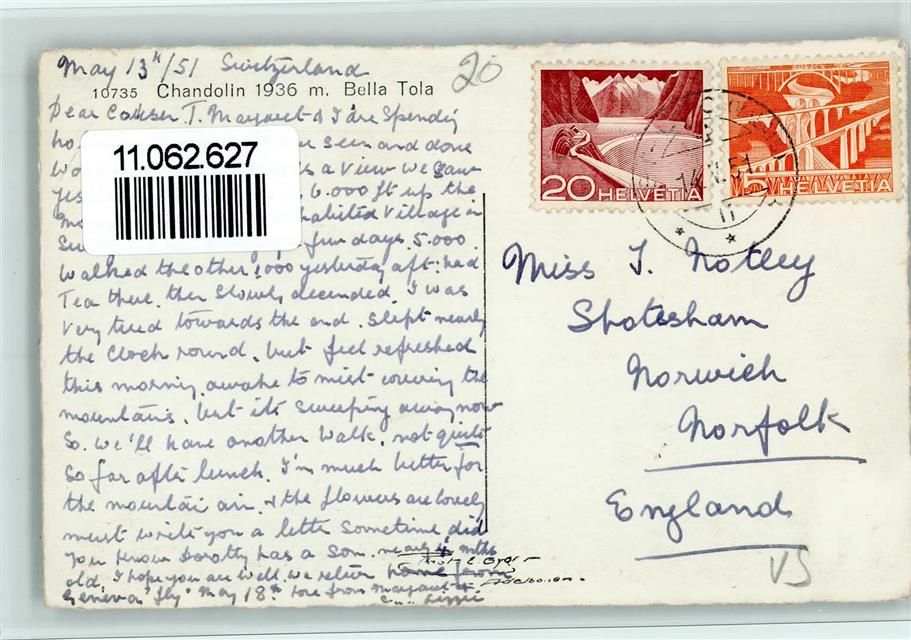 May 13th/51 Switzerland
10735 Chandolin 1936 m. Bella Tola
20
Dear T. Margaret & I are Spending
seen and done
11.062.627
as a view we saw
6.000 ft up the
Village in
few days. 5.000
walked the other 1,000 yesterday aft: had
Tea there. then Slowly decended. I was
Very tired towards the end. Slept nearly
the Clock round. but feel refreshed
this morning awake to mist covering the
mountains. but its Sweeping away now
So. we'll have another walk. not quite
so far after lunch. I'm much better for
the mountain air. & the flowers are lovely
must write you a letter Sometime did
You know Dorothy has a Son. nearly 4 mths
old. I hope you are well. we return home from
Geneva "fly" May 18th love from Margaret &
Lizzie
20 HELVETIA
5 HELVETIA
Miss J. Notley
Shotesham
Norwich
Norfolk
England
VS